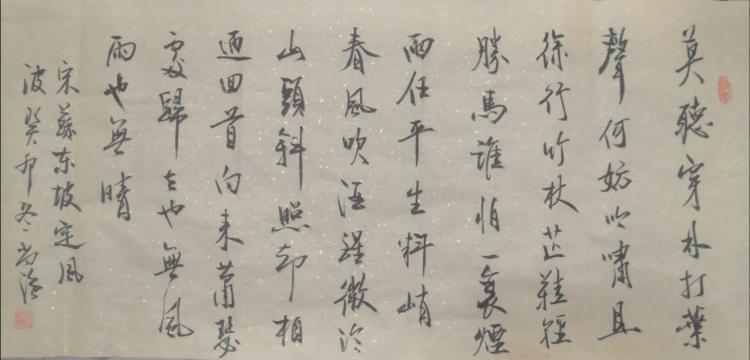 莫聽穿林打葉
聲何妨吟嘯且
徐行竹杖芒鞋輕
勝馬誰怕一蓑煙
雨任平生料峭
春風吹酒醒微冷
山頭斜照却相
迎回首向来蕭瑟
處歸去也無風
雨也無晴
宋蘇东坡定風
波癸卯冬